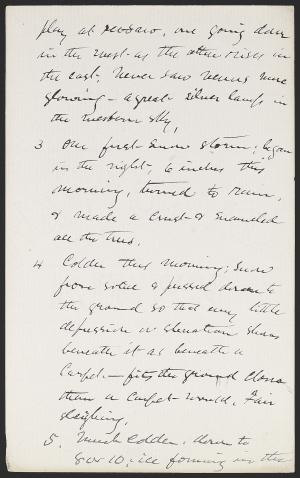 play at seesaw, one going down
in the west as the other rises in
the east. Never saw Venus more
glowing - a great silver lamp in
the western sky.
3 Our first snow storm; began
in the night, 6 inches this
morning, turned to rain,
& made a crust & enameled
all the trees.
4 Colder this morning; Snow
froze solid & pressed down to
the ground so that every little
depression or elevation shows
beneath it as beneath a
Carpet, - fits the ground closer
than a carpet would. Fair
sleighing.
5. Much colder, down to
8 or 10, ice forming in the